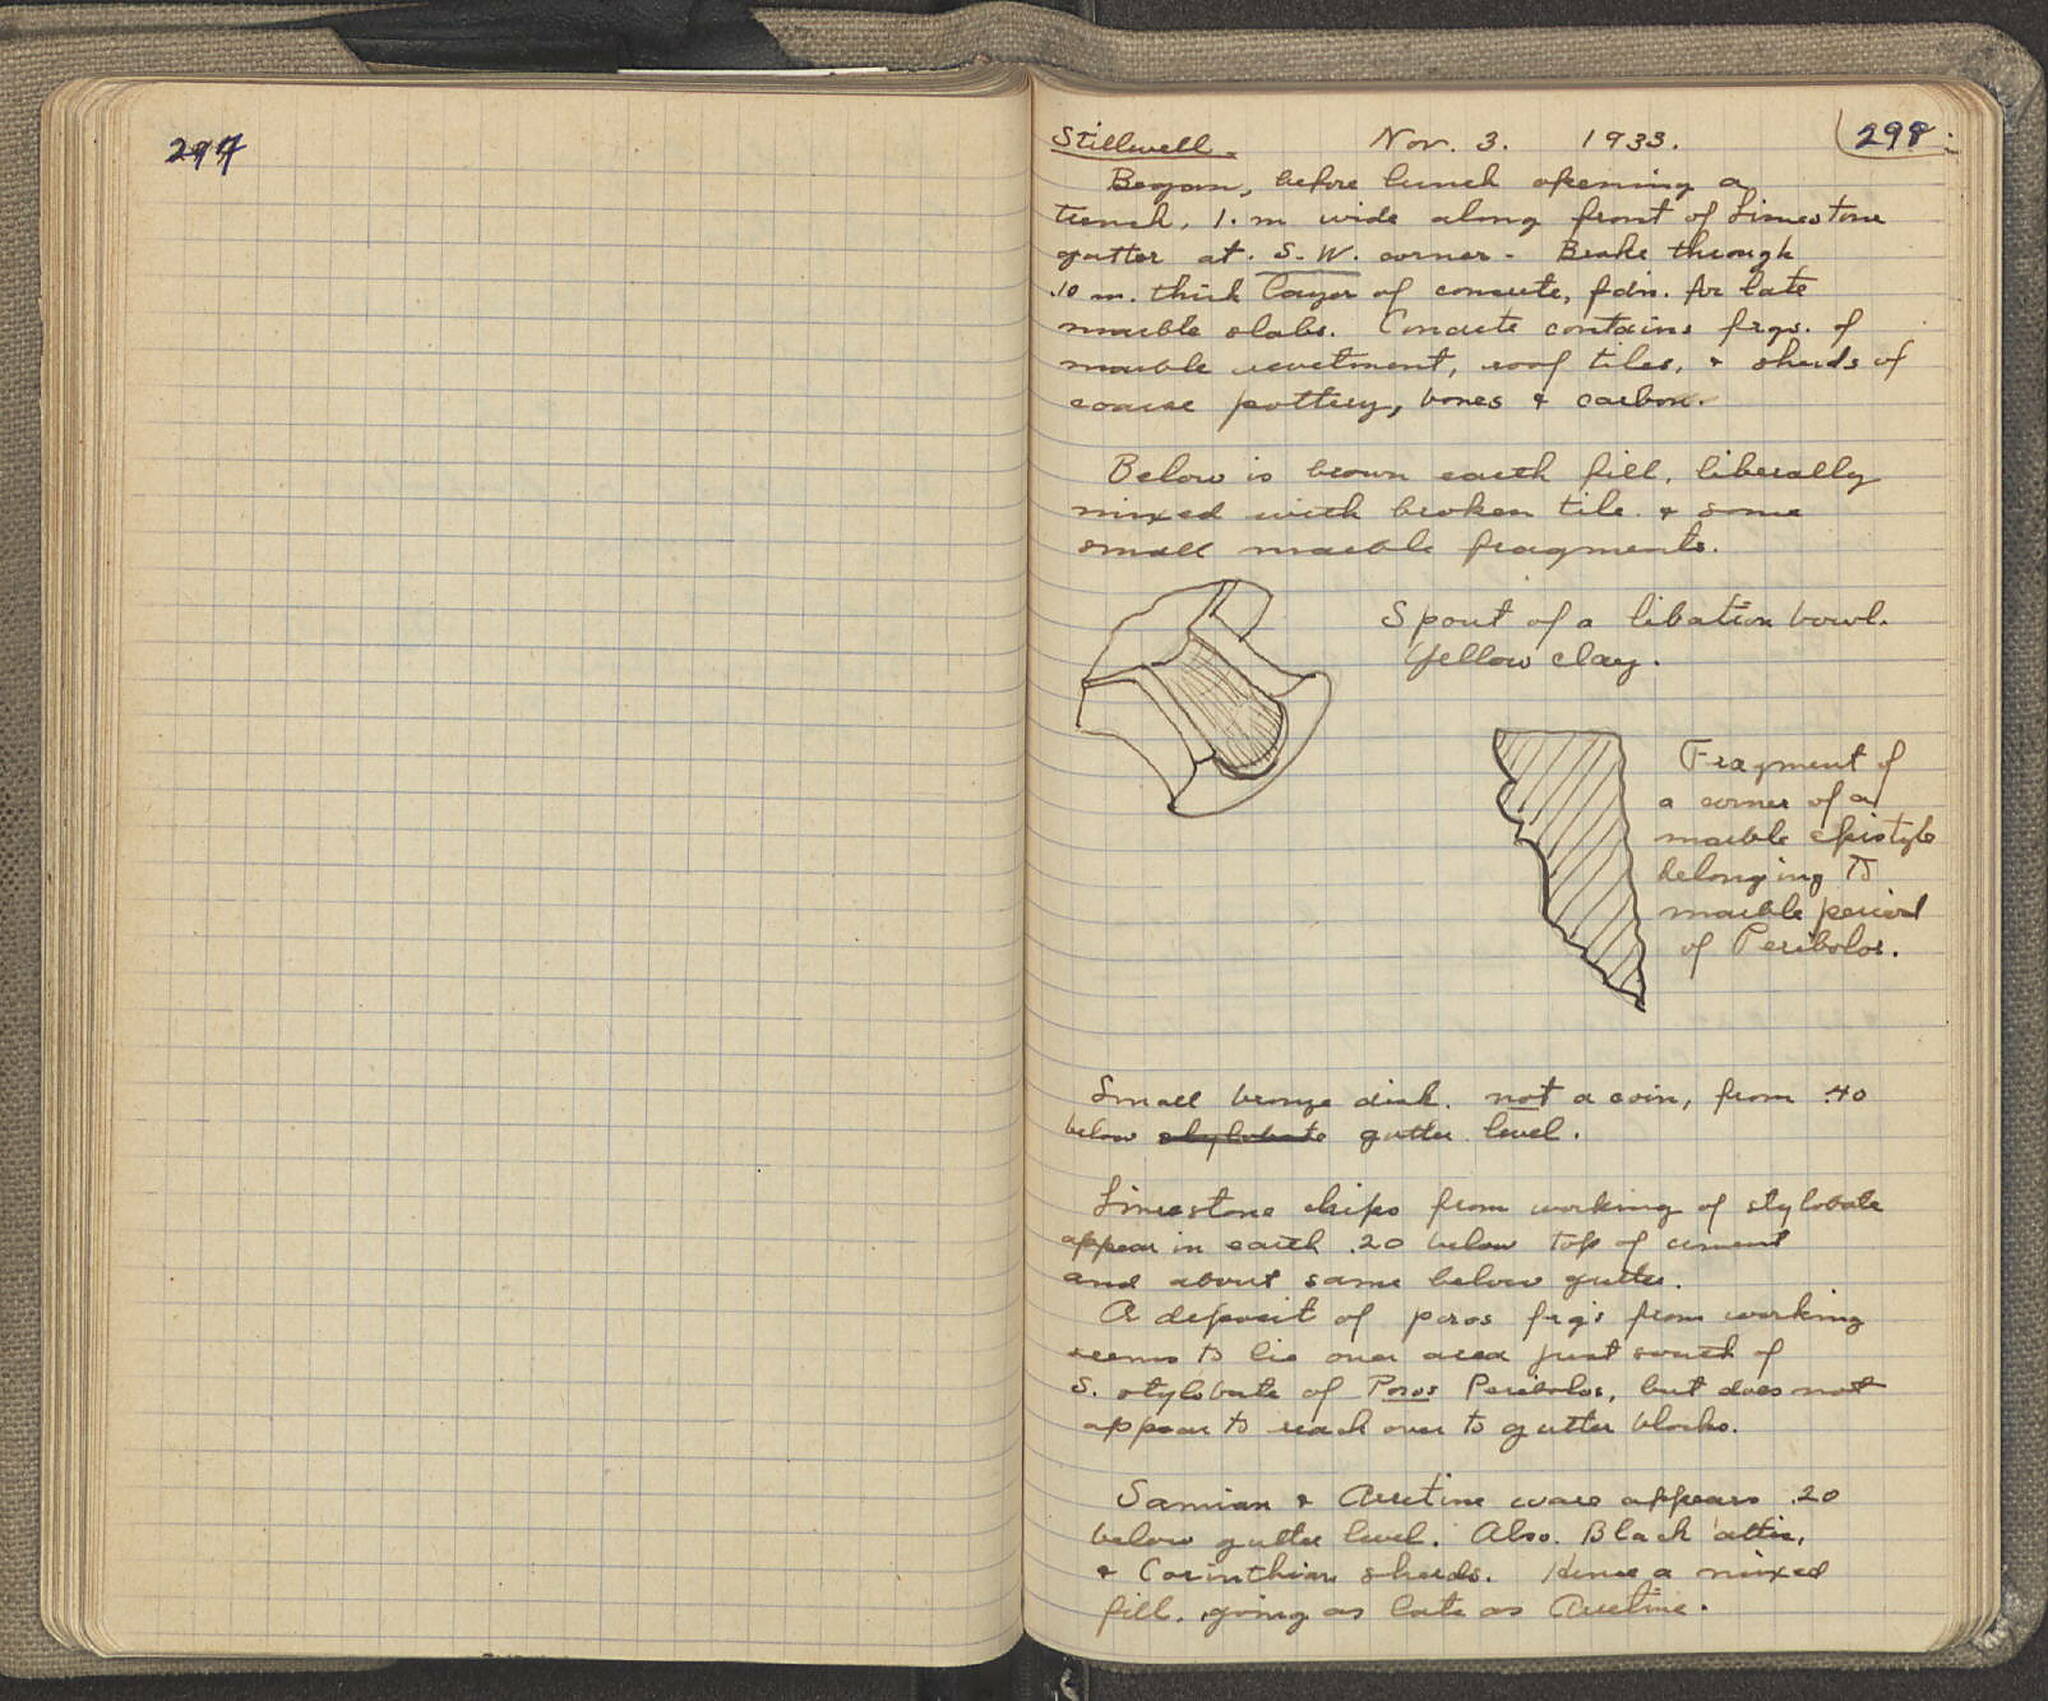 297
Stillwell. Nov. 3. 1933. 298
Began, before lunch opening a
trench, 1. m wide along front of Limestone
gutter at S. W. corner - Broke through
.10 m. thick layer of concrete, fdn. for late
marble slabs. Concrete contains frgs. of
marble revetment, roof tiles, & sherds of
coarse pottery, bones & carbon.
Below is brown earth fill, liberally
mixed with broken tile & some
small marble fragments.
Spout of a libation bowl.
Yellow clay.
Fragment of
a corner of a
marble epistyle
belonging to
marble period
of Peribolos.
Small bronze disk. not a coin, from .40
below stylobate gutter level.
Limestone chips from working of stylobate
appear in earth .20 below top of cement
and about same below gutter.
A deposit of poros frgs from working
seems to lie over area just south of
S. stylobate of Poros Peribolos, but does not
appear to reach over to gutter blocks.
Samian & Arretine ware appears .20
below gutter level. Also. Black attic,
& Corinthian sherds. Hence a mixed
fill. going as late as Arretine.